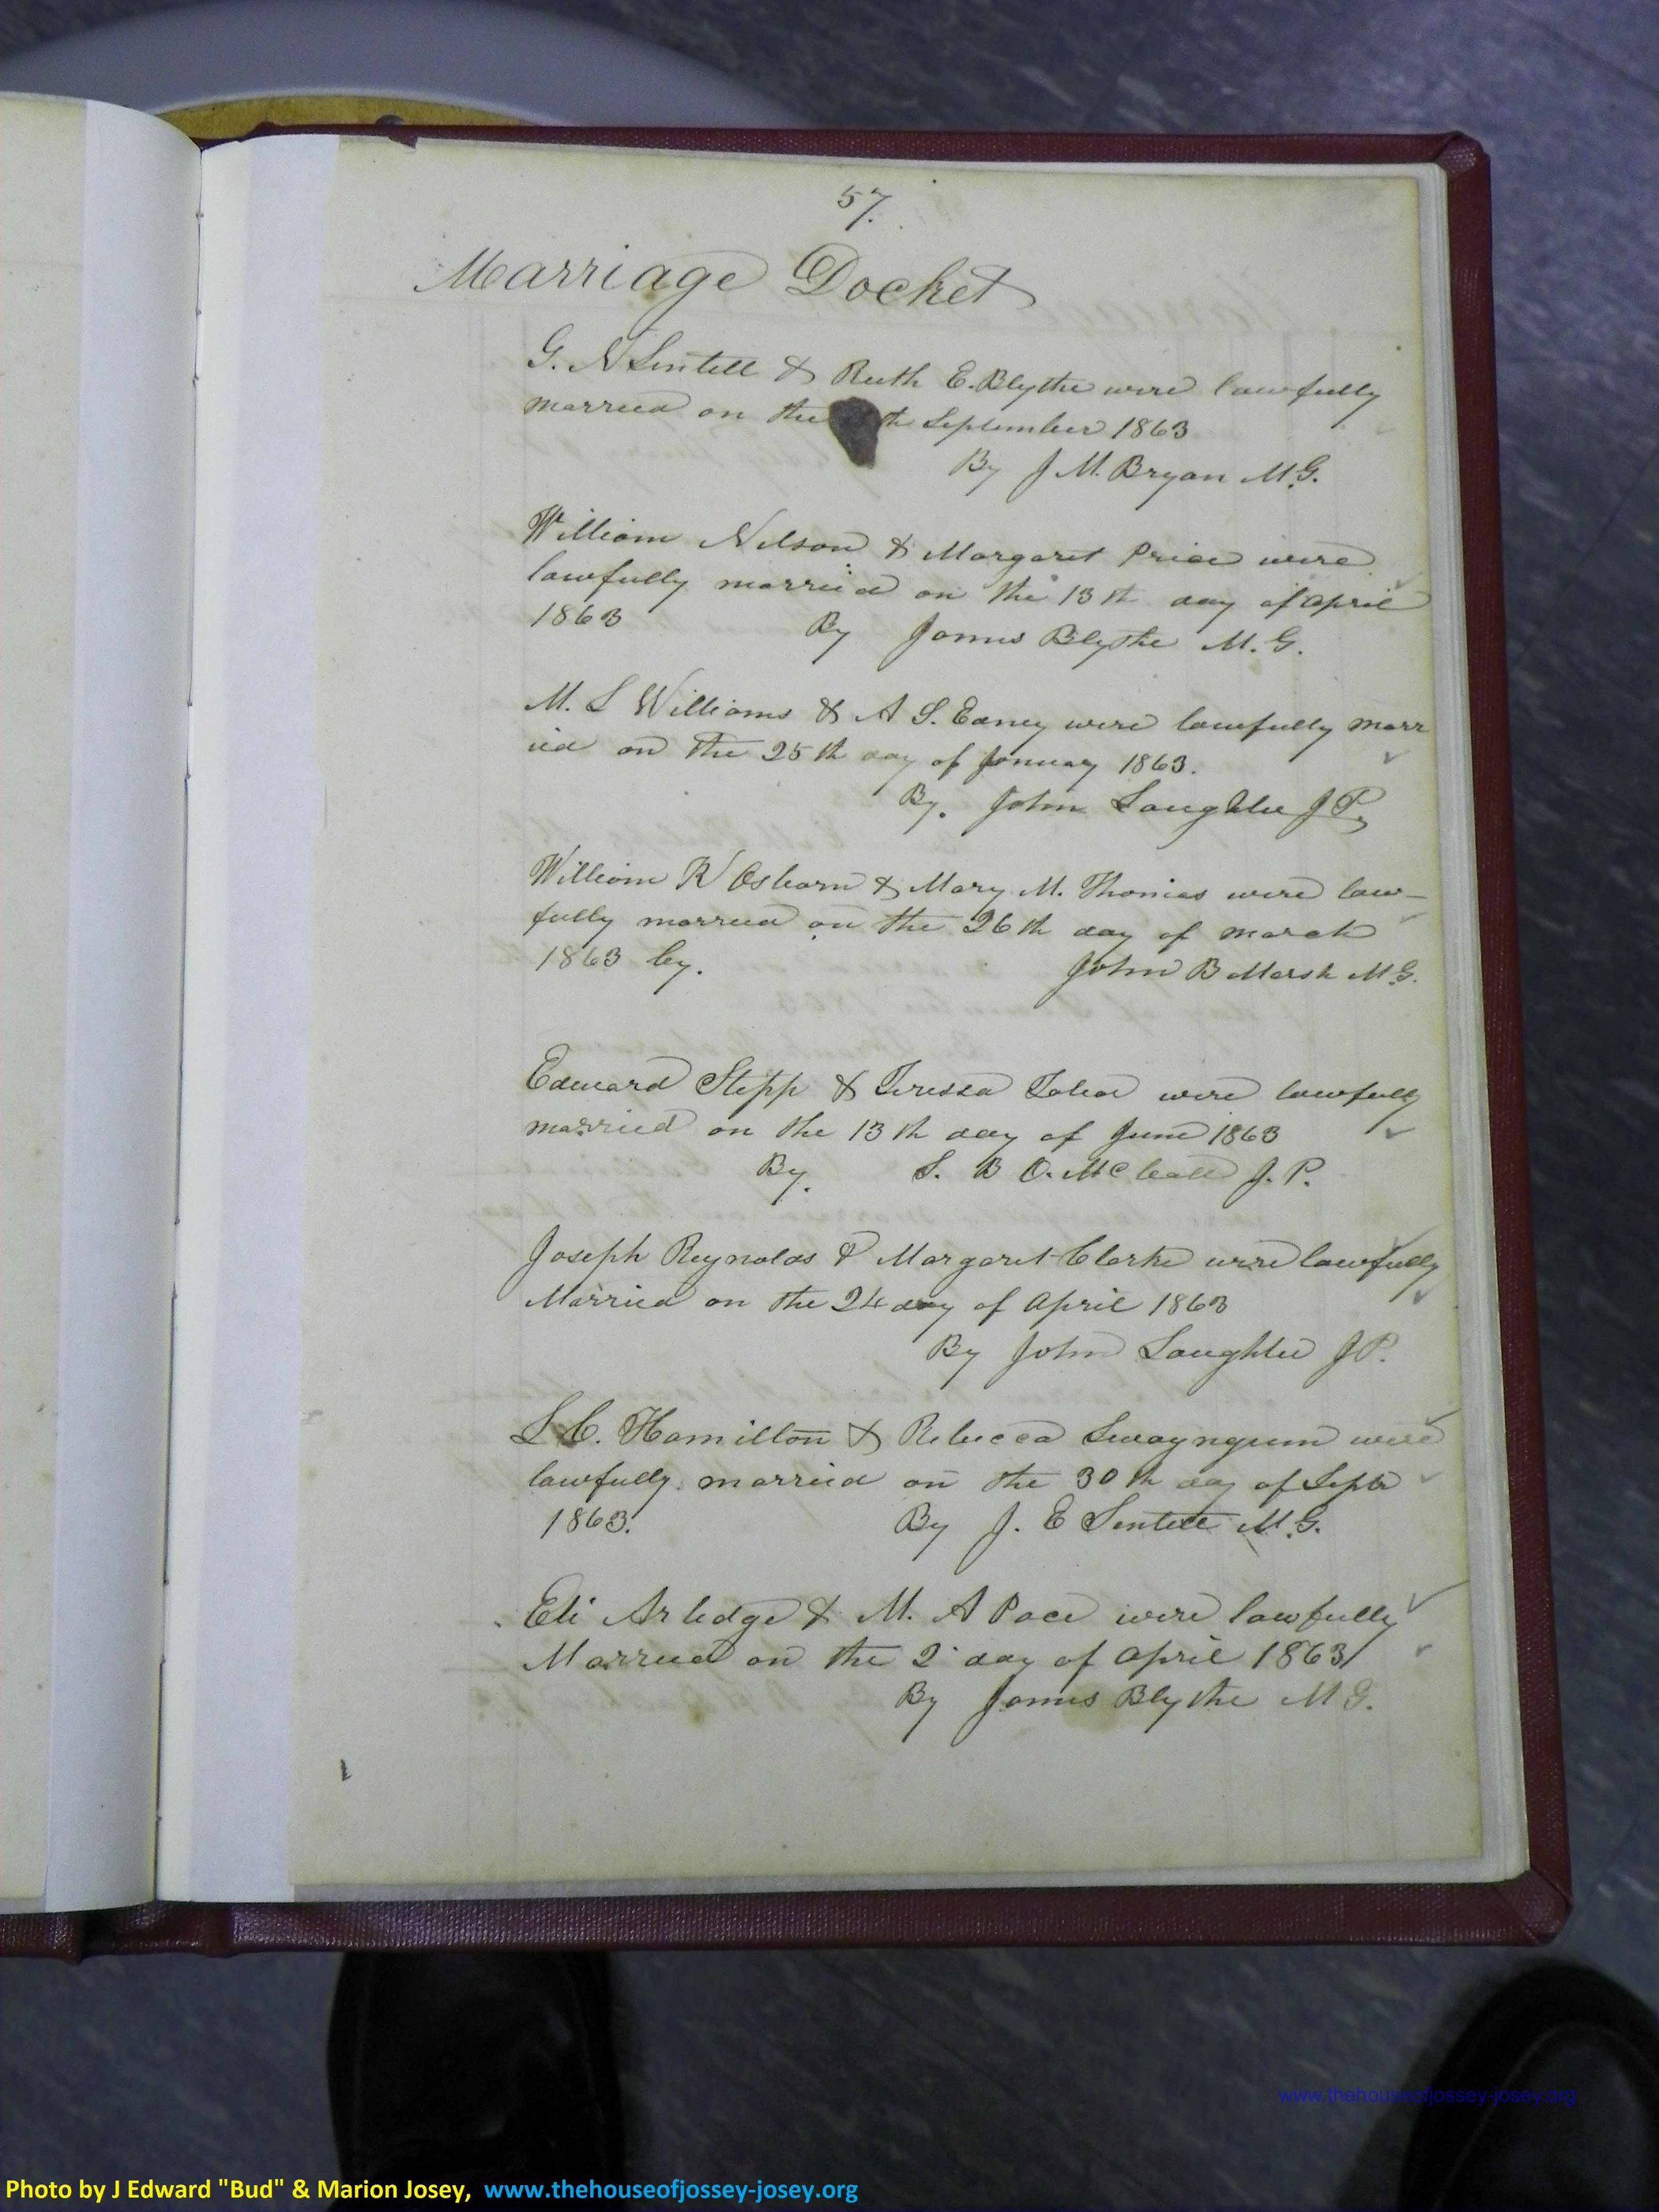 57.
Marriage Docket
G. N Sentell & Ruth E. Blythe were lawfully
married on the th September 1863
By J M. Bryan M.G.
William Nelson & Margaret Price were
lawfully married on the 13th day of april
1863 By James Blythe M.G.
M. L Williams & A S. Edney were lawfully marr
ied on the 25th day of January 1863.
By. John Laughter J P.
William R Osborn & Mary M. Thomas were law-
fully married on the 26th day of march
1863 by. John B Marsh M.G.
Edward Stepp & were lawfully
married on the 13th day of June 1863
By. S. B O. McCall J.P.
Joseph Reynolds & Margaret Clarke were lawfully
Married on the 24 day of April 1863
By John Laughter JP.
L C. Hamilton & Rebecca Swayngum were
lawfully married on the 30th day of Septr
1863. By J. E Sentell M.G.
Eli Arledge & M. A Pace were lawfully
Married on the 2 day of April 1863
By James Blythe M G.
www.thehouseofjossey-josey.org
Photo by J Edward "Bud" & Marion Josey, www.thehouseofjossey-josey.org